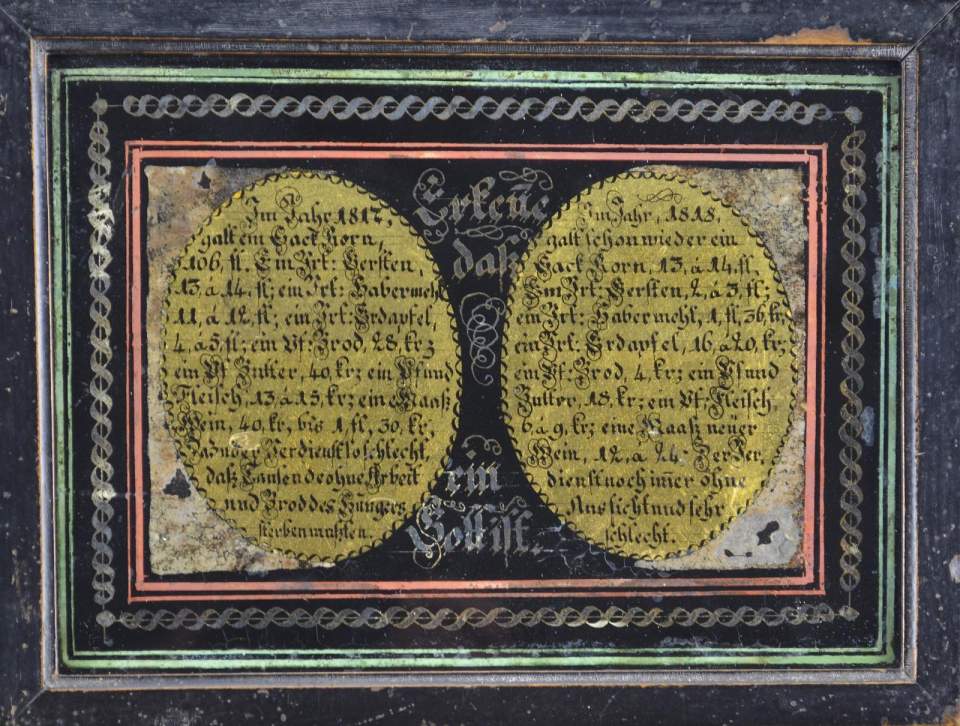 Erkeñe
daß
ein
Gott ist.
Im Jahr 1817,
galt ein Sack Korn,
106, fl. Ein Vrt: Gersten,
13, á 14, fl; ein Vrt: Habermehl
11, á 12, fl; ein Vrt: Erdapfel,
4, á 5, fl; ein Pf: Brod, 28, kr;
ein Pf Butter, 40, kr; ein Pfund
Fleisch, 13 á 15, kr; eine Maaß
Wein, 40, kr, bis 1, fl, 30, kr;
der Verdienst so schlecht,
daß Tausende ohne Arbeit
und Brod des Hungers
sterben mußten.
Im Jahr, 1818,
galt schon wieder ein
Sack Korn, 13, á 14, fl.
Ein Vrt: Gersten, 2, á 3, fl;
ein Vrt: Habermehl, 1, fl, 36, kr;
ein Vrt: Erdapfel, 16, á 20, kr;
ein Pf: Brod, 4, kr; ein Pfund
Butter, 18, kr; ein Pf: Fleisch,
6 á 9, kr; eine Maaß neüer
Wein, 12, á 24. Der Ver,
dienst noch im̃er ohne
Aussicht und sehr
schlecht.